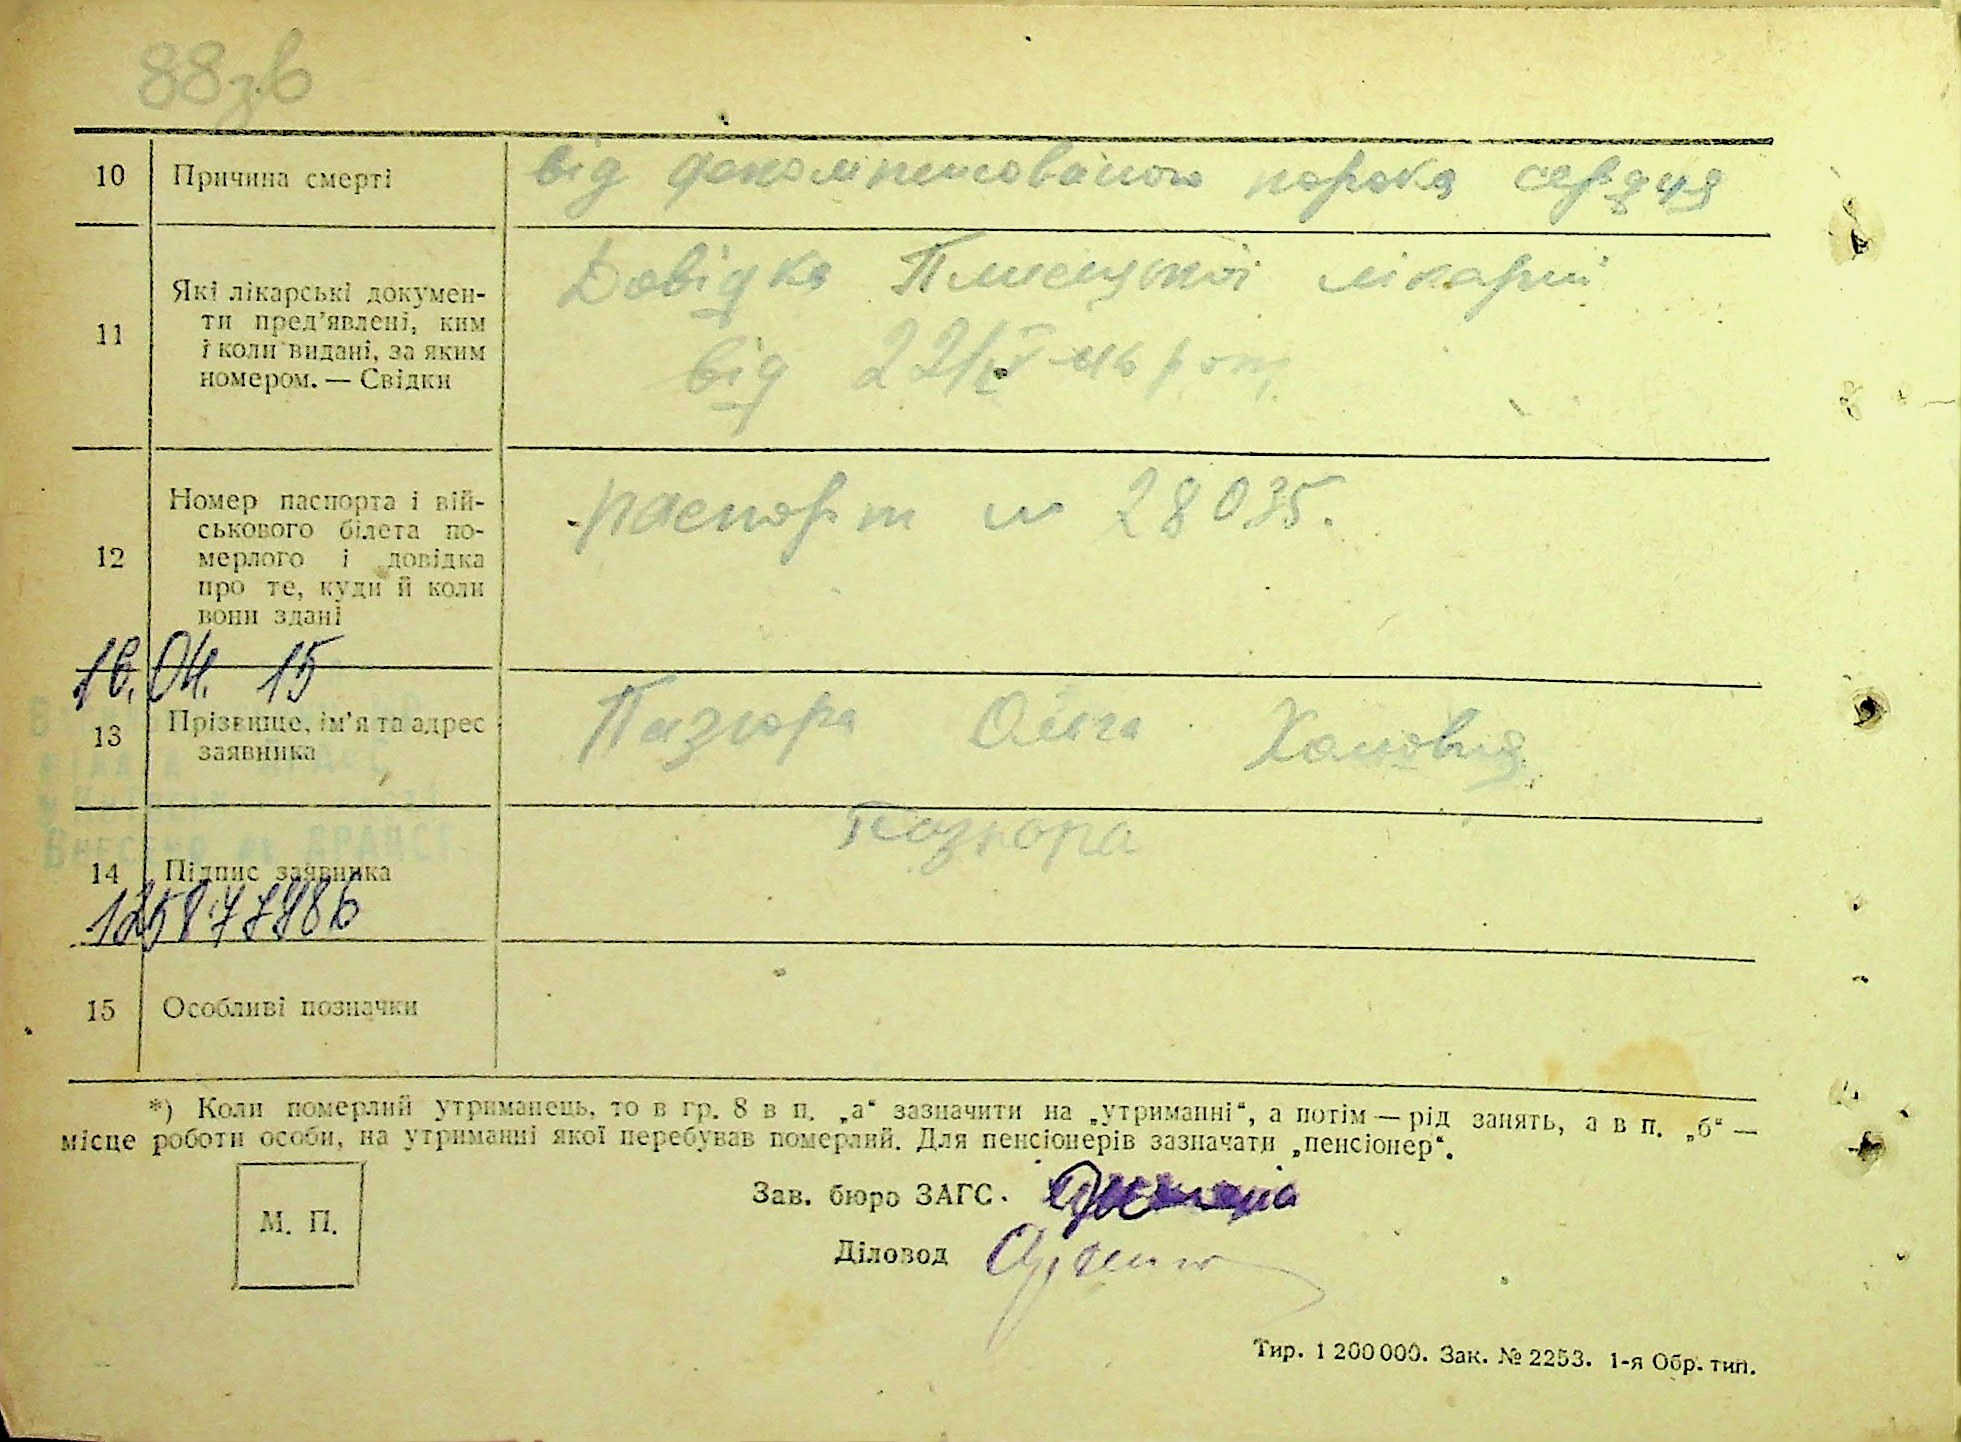 88зв
10 Причина смерті від декомпенсованого порока серця
11 Які лікарські докумен-
ти пред'явлені, ким
і коли видані, за яким
номером. — Свідки
Довідка лікарні
від 22/
12 Номер паспорта і вій-
ськового білета по-
мерлого і довідка
про те, куди й коли
вони здані
паспорт № 28035.
16.04. 15
13 Прізвище, ім'я та адрес
заявника
Пазюра Ольга
Внесено до ДРАЦСГ
14 Підпис заявника
Пазюра
15 Особливі позначки
*) Коли померлий утриманець, то в гр. 8 в п. „а“ зазначити на „утриманні“, а потім — рід занять, а в п. „б“ —
місце роботи особи, на утриманні якої перебував померлий. Для пенсіонерів зазначати „пенсіонер“.
М. П.
Зав. бюро ЗАГС.
Діловод
Тир. 1 200 000. Зак. № 2253. 1-я Обр. тип.